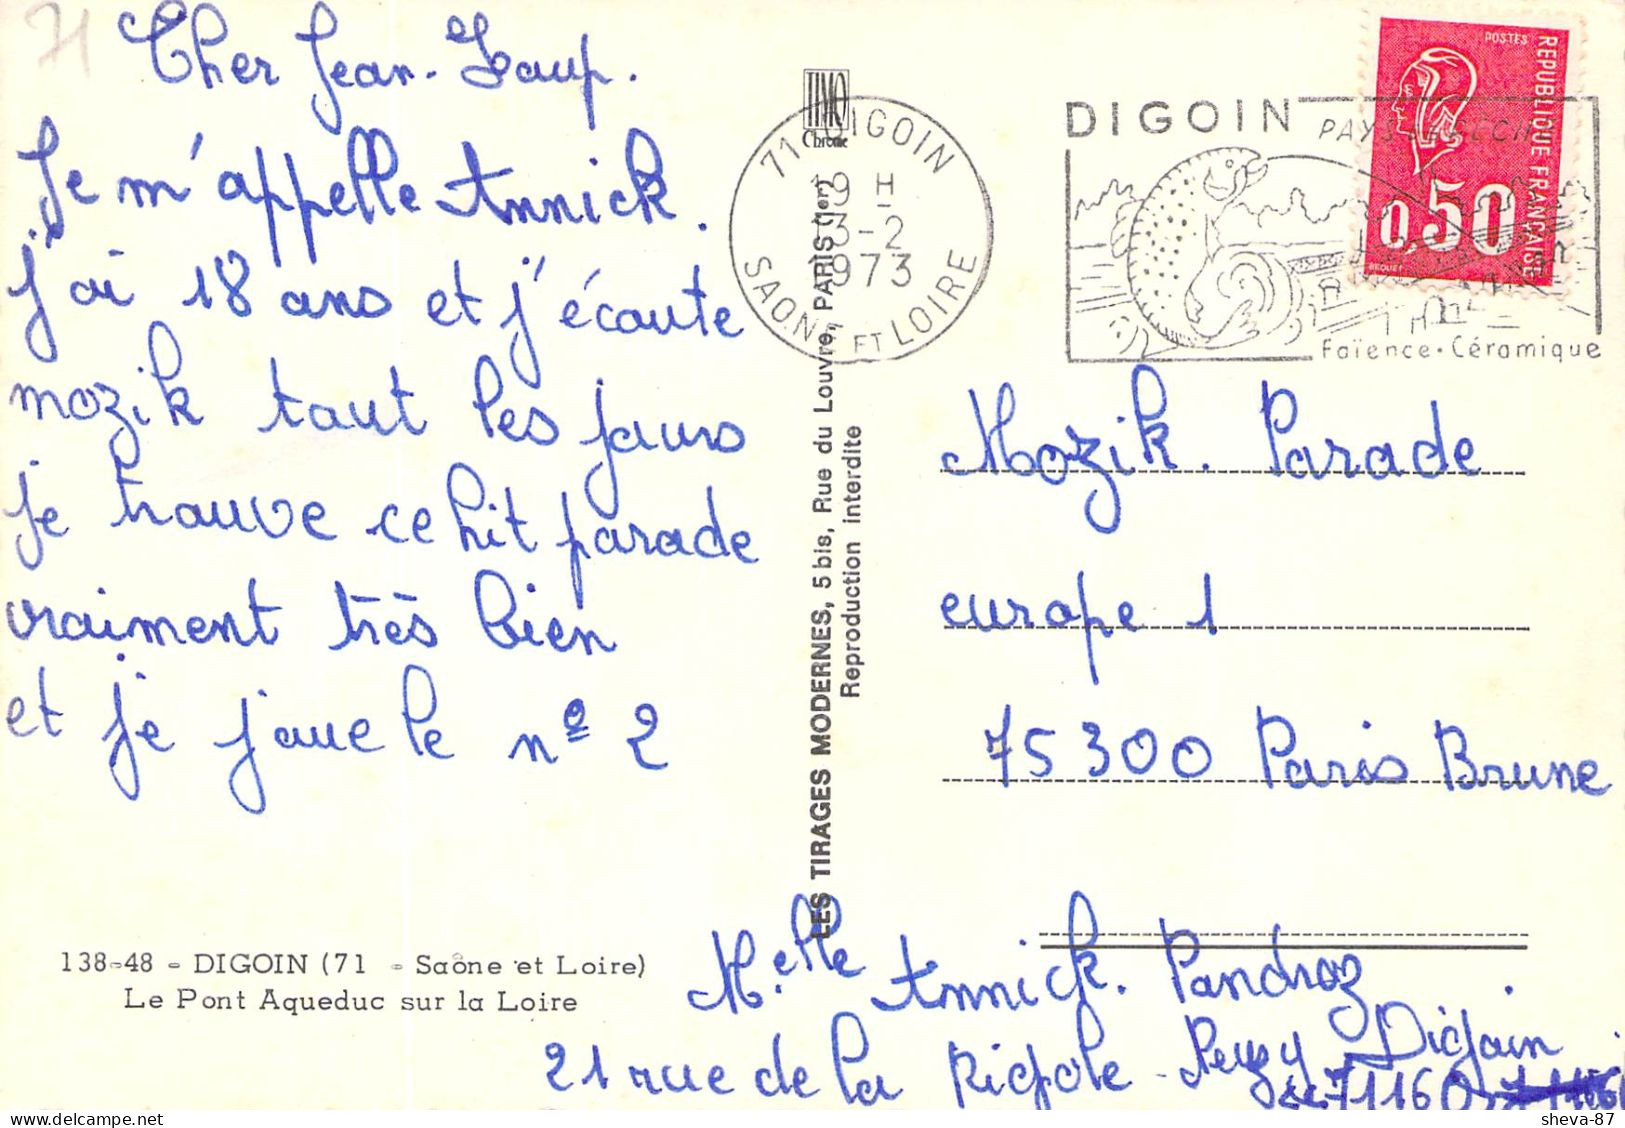 71
Cher Jean-Loup.
Je m'appelle Annick.
j'ai 18 ans et j'écoute
mozik tout les jours
je trouve ce hit parade
vraiment très bien
et je joue le nº 2
138-48 - DIGOIN (71 - Saône et Loire)
Le Pont Aqueduc sur la Loire
LES TIRAGES MODERNES, 5 bis, Rue du Louvre, PARIS (1er)
Reproduction interdite
71 DIGOIN
19 H
3-2
1973
SAONE ET LOIRE
DIGOIN
Faïence • Céramique
POSTES
REPUBLIQUE FRANÇAISE
0,50
BEQUET
Mozik. Parade
europe 1
75300 Paris Brune
Melle Annick. Pandroz
21 rue de la Rigole Digoin
71160
sheva-87